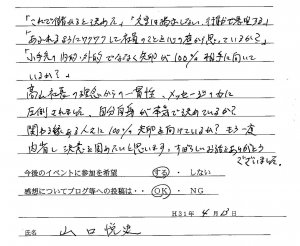 「これで儲ける と決めた」「 で 」
「あふれるようにワクワクして社員のことを心の底から思っているか?」
「小手先の 外的でなく矢印が100%相手に向いて
いるか?」
高山社長の理念からの一貫性、メッセージの力に
圧倒されました。自分自身が本気で決めているか?
関わる 人に100%矢印を向けているか? もう一度
内省し決意を固めたいと思います。すばらしいお話をありがとう
ございました。
今後のイベントに参加を希望 する ・ しない
感想についてブログ等への投稿は・・ OK ・ NG
H31年 4月 日
氏名 山口悦